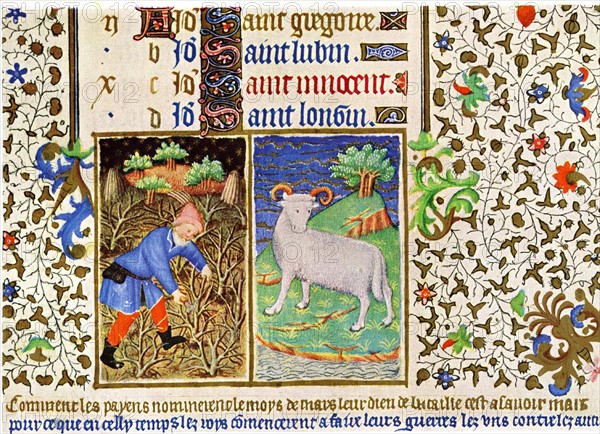 A Id Saint gregoire.
b Id Saint lubin.
x c Id Saint innocent.
d Id Saint longin.
Comment les payens nommerent le moys de mars leur dieu de bataille cest a savoir mars
pour ce que en celly temps les roys commencerent a faire leurs guerres les uns contre les aut